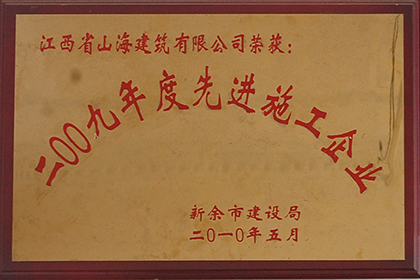 江西省山海建筑有限公司荣获:
二00九年度先进施工企业
新余市建设局
二0一0年五月